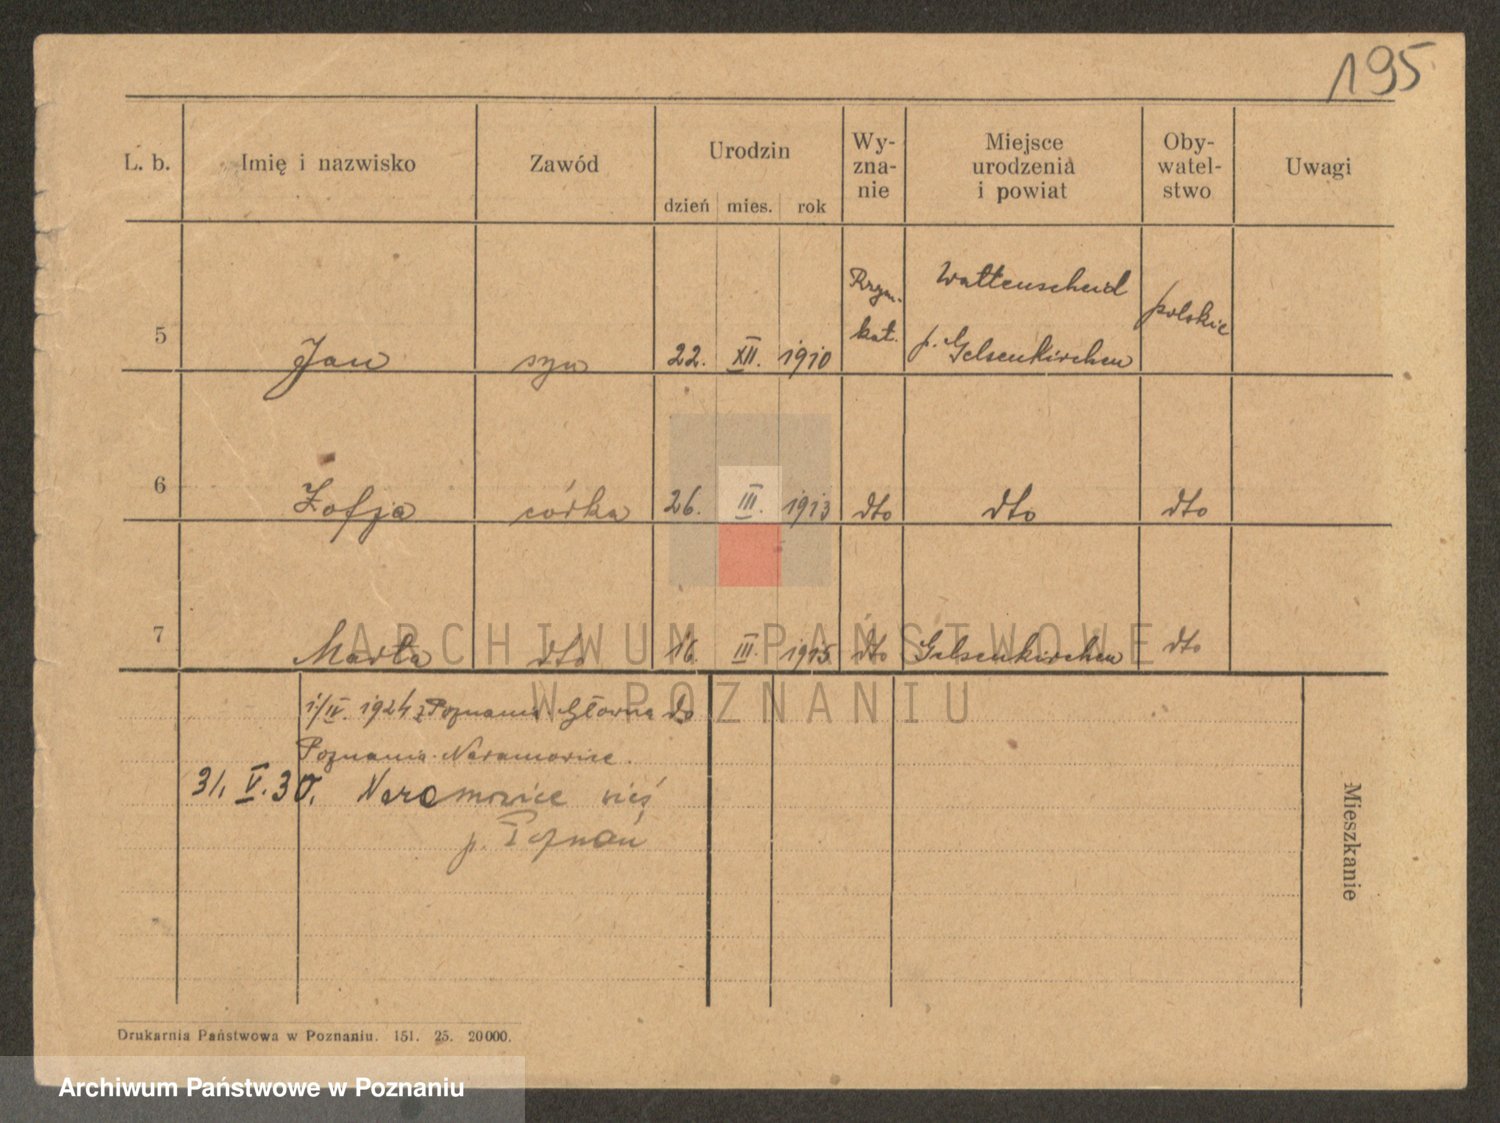 195
L. b. Imię i nazwisko Zawód Urodzin dzień mies. rok Wy-zna-nie Miejsce urodzenia i powiat Oby-watel-stwo Uwagi
5 Jan syn 22. XII. 1910 Rzym. kat. Wattenscheid p. Gelsenkirchen polskie
6 Zofja córka 26. III. 1913 dto dto dto
7 Marta dto 16. III. 1915 dto Gelsenkirchen dto
ARCHIWUM PAŃSTWOWE
W POZNANIU
1/IV. 1924 z Poznania-Główna do
Poznania-Naramowice.
31. V. 30. Naramowice wieś
p. Poznań
Mieszkanie
Drukarnia Państwowa w Poznaniu. 151. 25. 20000.
Archiwum Państwowe w Poznaniu